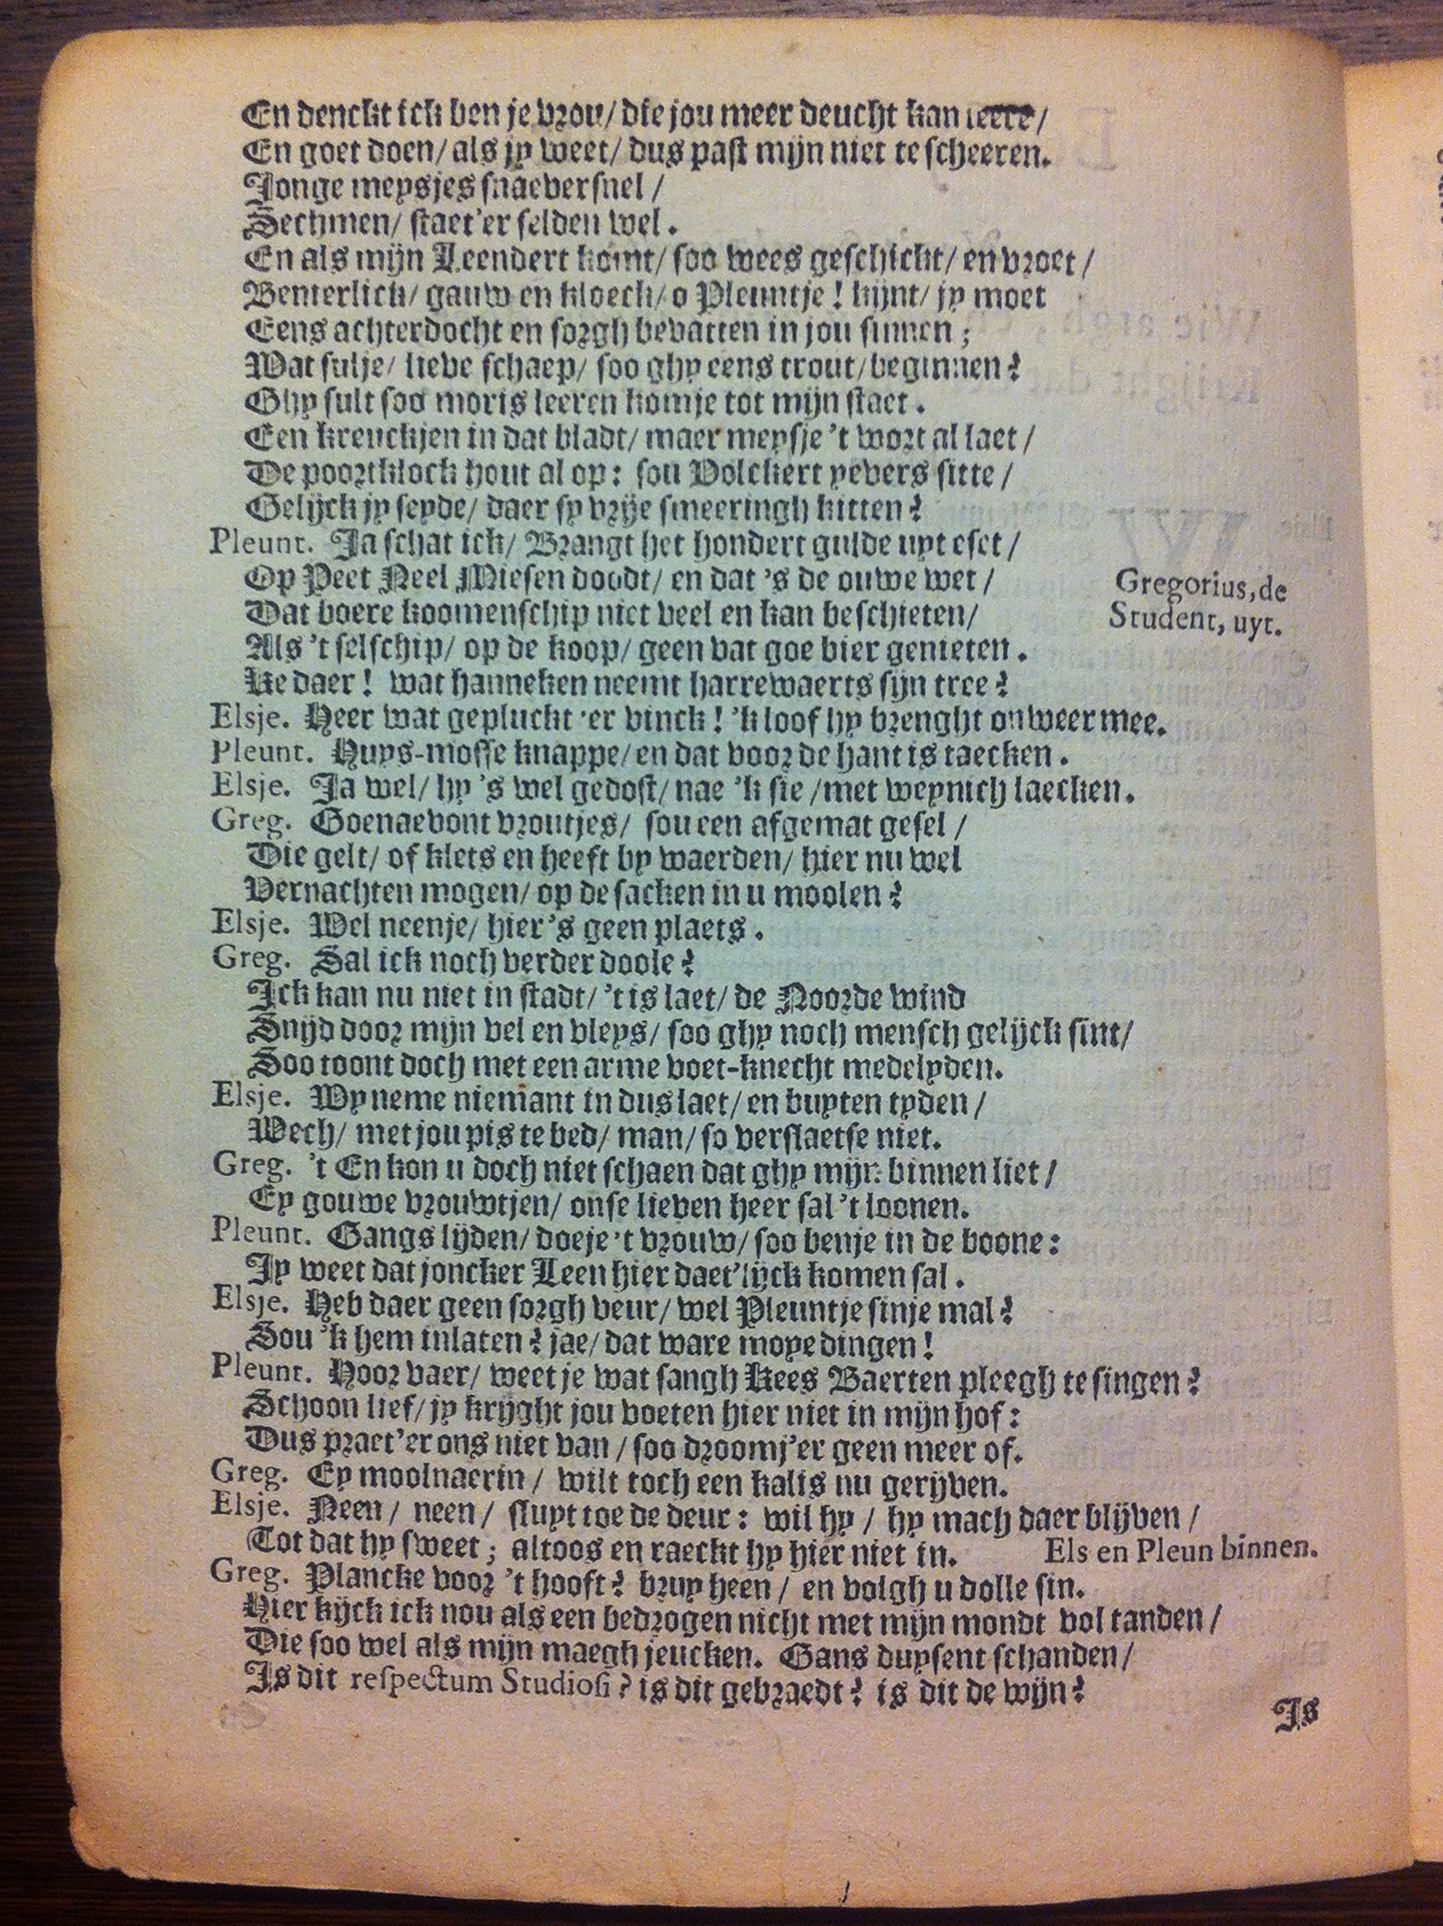 En denckt ick ben je vrou/ die jou meer deucht kan leere/
En goet doen/ als jy weet/ dus past mijn niet te scheeren.
Jonge meysjes snaeversnel/
Sechmen/ staet'er selden wel.
En als mijn Leendert komt/ soo wees geschickt/ en vroet/
Benierlick/ gauw en kloeck/ o Pleuntje! kijnt/ jy moet
Eens achterdocht en sorgh bevatten in jou sinnen;
Wat sulje/ lieve schaep/ soo ghy eens trout/ beginnen?
Ghy sult soo moris leeren komje tot mijn staet.
Een kreuckjen in dat bladt/ maer meysje 't wort al laet/
De poortklock hout al op: sou Volckert yevers sitte/
Gelijck jy seyde/ daer sy vrye smeeringh kitten?
Pleunt. Ja schat ick/ Brangt het hondert gulde uyt eset/
Op Peet Neel Miesen doodt/ en dat 's de ouwe wet/
Gregorius, de
Dat boere koomenschip niet veel en kan beschieten/
Student, uyt.
Als 't selschip/ op de koop/ geen vat goe bier genieten.
Ke daer! wat hanneken neemt harrewaerts sijn tree?
Elsje. Heer wat geplucht 'er vinck! 'k loof hy brenght onweer mee.
Pleunt. Huys-mosse knappe/ en dat voor de hant is taecken.
Elsje. Ja wel/ hy 's wel gedost/ nae 'k sie/ met weynich laecken.
Greg. Goenaevont vroutjes/ sou een afgemat gesel/
Die gelt/ of klets en heeft by waerden/ hier nu wel
Vernachten mogen/ op de sacken in u moolen?
Elsje. Wel neenje/ hier 's geen plaets.
Greg. Sal ick noch verder doole?
Ick kan nu niet in stadt/ 't is laet/ de Noorde wind
Snijd door mijn vel en vleys/ soo ghy noch mensch gelijck sint/
Soo toont doch met een arme voet-knecht medelyden.
Elsje. Wy neme niemant in dus laet/ en buyten tyden/
Wech/ met jou pis te bed/ man/ so verslaetse niet.
Greg. 't En kon u doch niet schaen dat ghy mijn binnen liet/
Ey gouwe vrouwtjen/ onse lieven heer sal 't loonen.
Pleunt. Gangs lijden/ doeje 't vrouw/ soo benje in de boone:
Jy weet dat joncker Leen hier daet'lijck komen sal.
Elsje. Heb daer geen sorgh veur/ wel Pleuntje sinje mal?
Sou 'k hem inlaten? jae/ dat ware moye dingen!
Pleunt. Hoor vaer/ weet je wat sangh Kees Baerten pleegh te singen?
Schoon lief/ jy krijght jou voeten hier niet in mijn hof:
Dus praet'er ons niet van/ soo droomj'er geen meer of.
Greg. Ey moolnaerin/ wilt toch een kalis nu gerijven.
Elsje. Neen/ neen/ sluyt toe de deur: wil hy/ hy mach daer blijven/
Tot dat hy sweet; altoos en raeckt hy hier niet in. Els en Pleun binnen.
Greg. Plancke voor 't hooft? bruy heen/ en volgh u dolle sin.
Hier kijck ick nou als een bedrogen nicht met mijn mondt vol tanden/
Die soo wel als mijn maegh jeucken. Gans duysent schanden/
Is dit respectum Studiosi? is dit gebraedt? is dit de wijn?
Is